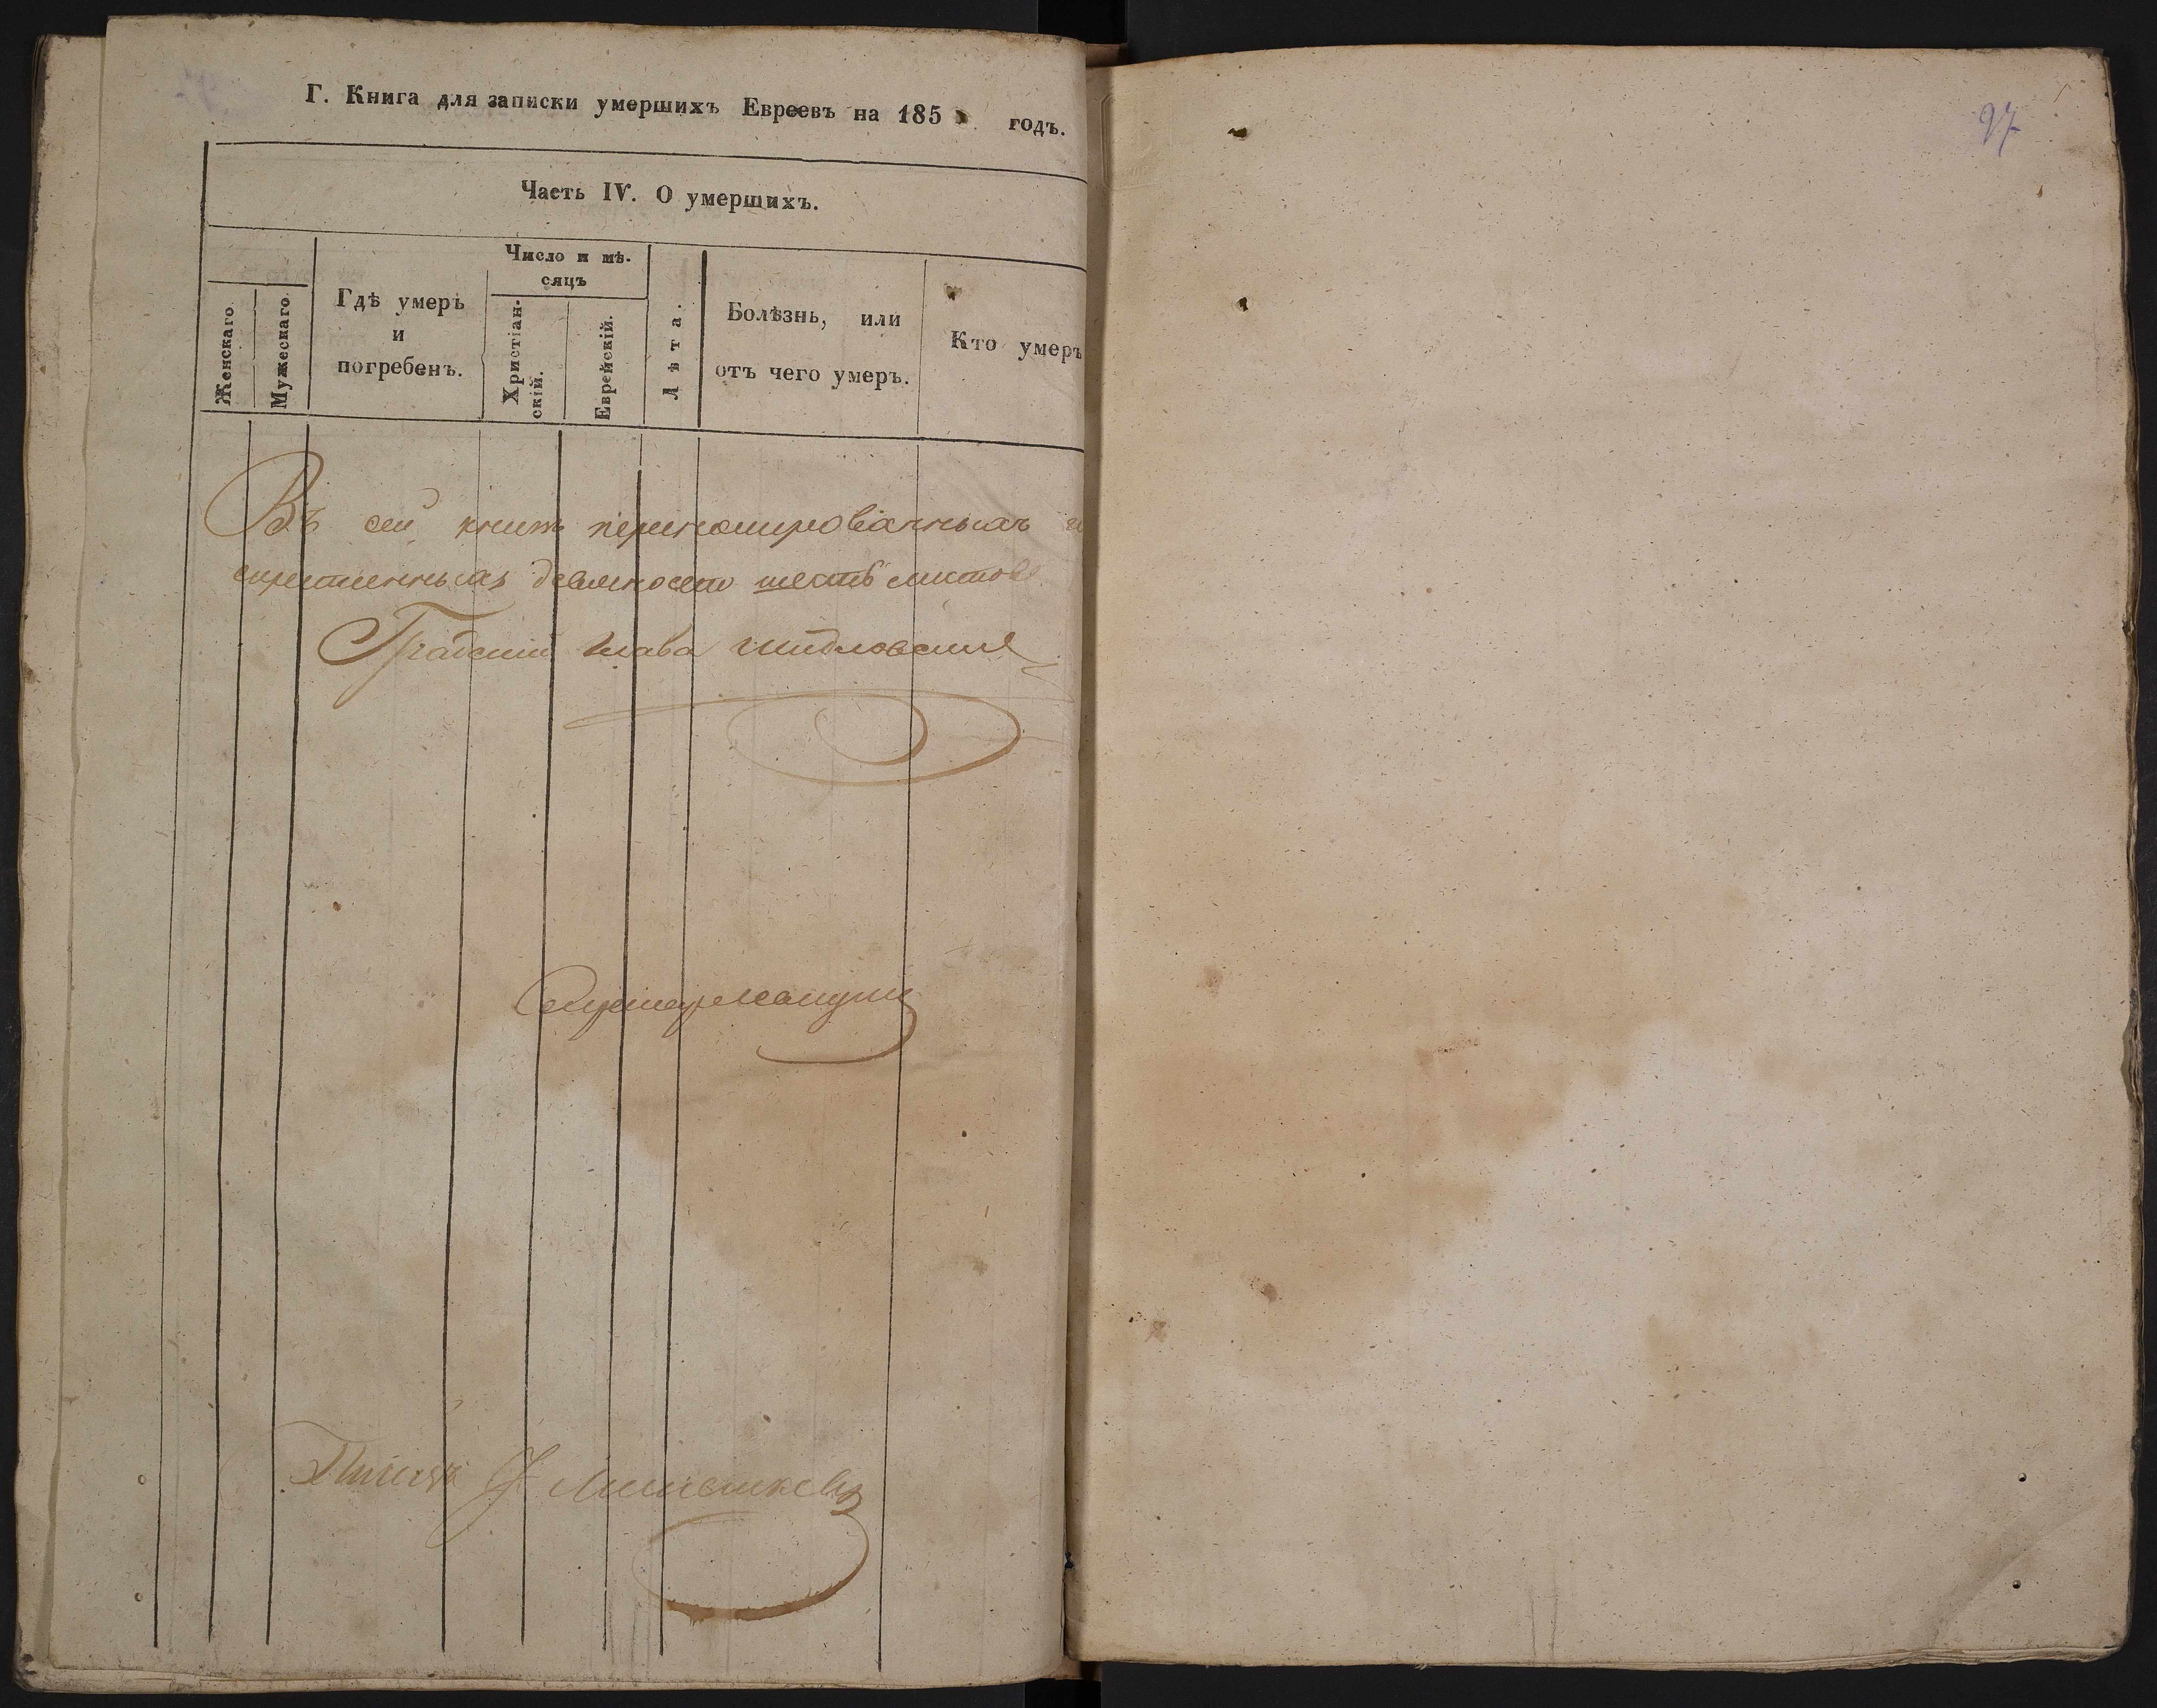 Г. Книга для записки умершихъ Евреевъ на 185 годъ.
Часть IV. О умершихъ.
Женскаго
Мужескаго
Гдѣ умеръ
и
погребенъ.
Число и мѣ-
сяцъ
Христіан-
скій.
Еврейскій.
Лѣта.
Болѣзнь, или
отъ чего умеръ.
Кто умеръ
Въ сей книгѣ переномированныхъ и
скрепленныхъ девяносто шесть листовъ
Градскій Глава
97